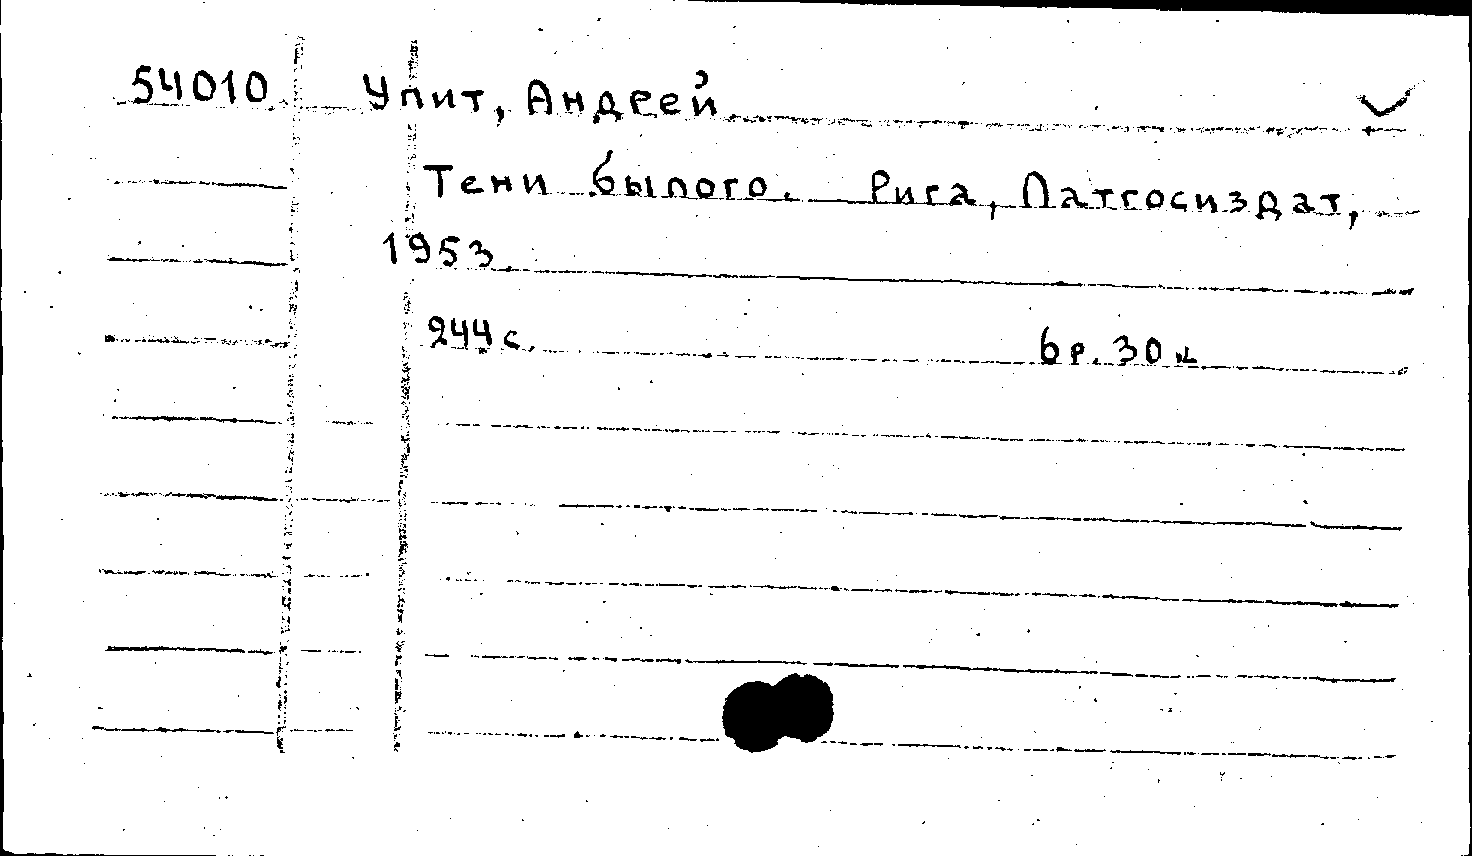 54010 Упит, Андрей
Тени былого. Рига, Латгосиздат,
1953
244 с. 6 р. 30 к